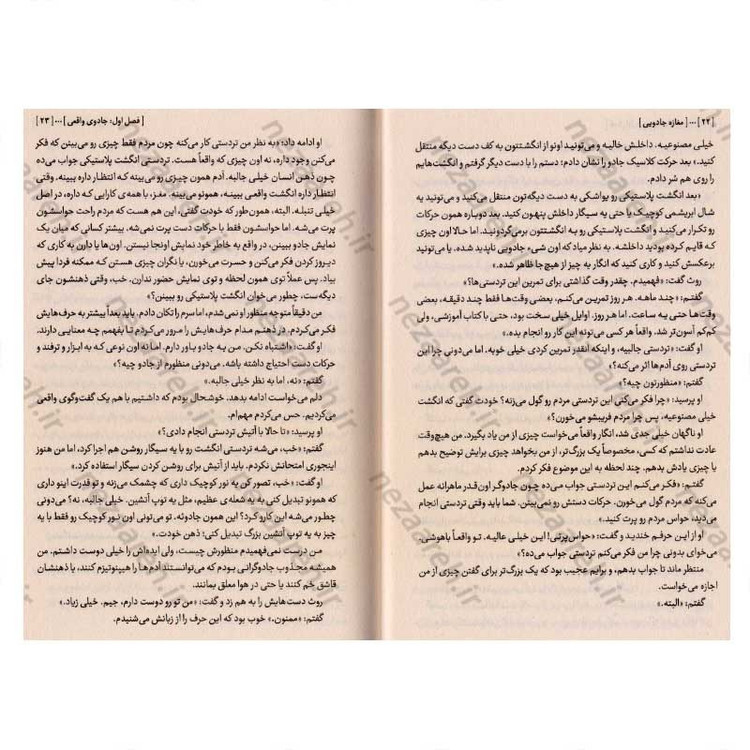 [ ۲۲ ] ... [ مغازه جادویی ]
خیلی مصنوعیه. داخلش خالیه و می‌تونید اونو از انگشتتون به کف دست دیگه منتقل
کنید.» بعد حرکت کلاسیک جادو را نشان دادم: دستم را با دست دیگر گرفتم و انگشت‌هایم
را روی هم شر دادم.
«بعد انگشت پلاستیکی رو یواشکی به دست دیگه‌تون منتقل می‌کنید و می‌تونید یه
شال ابریشمی کوچیک یا حتی یه سیگار داخلش پنهون کنید. بعد دوباره همون حرکات
رو تکرار می‌کنید و انگشت پلاستیکی رو به انگشتتون برمی‌گردونید. اما حالا اون چیزی
که قایم کرده بودید داخلشه. به نظر میاد که اون شیء جادویی ناپدید شده. یا می‌تونید
برعکسش کنید و کاری کنید که انگار یه چیز از هیچ‌جا ظاهر شده.»
روث گفت: «فهمیدم. چقدر وقت گذاشتی برای تمرین این تردستی‌ها؟»
گفتم: «چند ماهه. هر روز تمرین می‌کنم. بعضی وقت‌ها فقط چند دقیقه، بعضی
وقت‌ها حتی یه ساعت. اما هر روز. اوایل خیلی سخت بود، حتی با کتاب آموزشی، ولی
کم‌کم آسون‌تر شد. واقعاً هر کسی می‌تونه این کار رو انجام بده.»
او گفت: «تردستی جالبیه، و اینکه انقدر تمرین کردی خیلی خوبه. اما می‌دونی چرا این
تردستی روی آدم‌ها اثر می‌کنه؟»
گفتم: «منظورتون چیه؟»
او پرسید: «چرا فکر می‌کنی این تردستی مردم رو گول می‌زنه؟ خودت گفتی که انگشت
خیلی مصنوعیه، پس چرا مردم فریبشو می‌خورن؟»
او ناگهان خیلی جدی شد، انگار واقعاً می‌خواست چیزی از من یاد بگیرد. من هیچ‌وقت
عادت نداشتم که کسی، مخصوصاً یک بزرگ‌تر، از من بخواهد چیزی برایش توضیح بدهم
یا چیزی یادش بدهم. چند لحظه به این موضوع فکر کردم.
گفتم: «فکر می‌کنم این تردستی جواب می‌ده چون جادوگر اون‌قدر ماهرانه عمل
می‌کنه که مردم گول می‌خورن. حرکات دستش رو نمی‌بینن. شما باید وقتی تردستی انجام
می‌دید، حواس مردم رو پرت کنید.»
او از این حرفم خندید و گفت: «حواس‌پرتی! این خیلی عالیه. تو واقعاً باهوشی.
می‌خوای بدونی چرا من فکر می‌کنم تردستی جواب می‌ده؟»
منتظر ماند تا جواب بدهم، و برایم عجیب بود که یک بزرگ‌تر برای گفتن چیزی از من
اجازه می‌خواست.
گفتم: «البته.»
[ فصل اول: جادوی واقعی ] ... [ ۲۳ ]
او ادامه داد: «به نظر من تردستی کار می‌کنه چون مردم فقط چیزی رو می‌بینن که فکر
می‌کنن وجود داره، نه اون چیزی که واقعاً هست. تردستی انگشت پلاستیکی جواب می‌ده
چون ذهن انسان خیلی جالبه. آدم همون چیزی رو می‌بینه که انتظار داره ببینه. وقتی
انتظار داره انگشت واقعی ببینه، همونو می‌بینه. مغز، با همه‌ی کارایی که داره، در اصل
خیلی تنبله. البته، همون‌طور که خودت گفتی، این هم هست که مردم راحت حواسشون
پرت می‌شه. اما حواسشون فقط با حرکات دست پرت نمی‌شه. بیشتر کسانی که میان یک
نمایش جادو ببینن، در واقع به خاطر خود نمایش اونجا نیستن. اون‌ها یا دارن به کاری که
دیروز کردن فکر می‌کنن و حسرت می‌خورن، یا نگران چیزی هستن که ممکنه فردا پیش
بیاد. پس عملاً توی همون لحظه و توی نمایش حضور ندارن. خب، وقتی ذهنشون جای
دیگه‌ست، چطور می‌خوان انگشت پلاستیکی رو ببینن؟»
من دقیقاً متوجه منظور او نمی‌شدم، اما سرم را تکان دادم. باید بعداً بیشتر به حرف‌هایش
فکر می‌کردم. در ذهنم مدام حرف‌هایش را مرور می‌کردم تا بفهمم چه معنایی دارند.
او گفت: «اشتباه نکن. من به جادو باور دارم. اما نه اون نوعی که به ابزار و ترفند و
حرکات دست احتیاج داشته باشه. می‌دونی منظورم از جادو چیه؟»
گفتم: «نه، اما به نظر خیلی جالبه.»
دلم می‌خواست ادامه بدهد. خوشحال بودم که داشتیم با هم یک گفت‌وگوی واقعی
می‌کردیم. حس می‌کردم مهم‌ام.
او پرسید: «تا حالا با آتیش تردستی انجام دادی؟»
گفتم: «خب، می‌شه تردستی انگشت رو با یه سیگار روشن هم اجرا کرد، اما من هنوز
اینجوری امتحانش نکردم. باید از آتیش برای روشن کردن سیگار استفاده کرد.»
او گفت: «خب، تصور کن یه نور کوچیک داری که چشمک می‌زنه و تو قدرت اینو داری
که همونو تبدیل کنی به یه شعله‌ی عظیم، مثل یه توپ آتشین. خیلی جالبه، نه؟ می‌دونی
چطور می‌شه این کارو کرد؟ این همون جادوئه. تو می‌تونی اون نور کوچیک رو فقط با یه
چیز به یه توپ آتشین بزرگ تبدیل کنی؛ ذهن خودت.»
من درست نمی‌فهمیدم منظورش چیست، ولی ایده‌اش را خیلی دوست داشتم. من
همیشه مجذوب جادوگرانی بودم که می‌توانستند آدم‌ها را هیپنوتیزم کنند، با ذهنشان
قاشق خم کنند یا حتی در هوا معلق بمانند.
روث دست‌هایش را به هم زد و گفت: «من تو رو دوست دارم، جیم. خیلی زیاد.»
گفتم: «ممنون.» خوب بود که این حرف را از زبانش می‌شنیدم.
nezaareh.ir